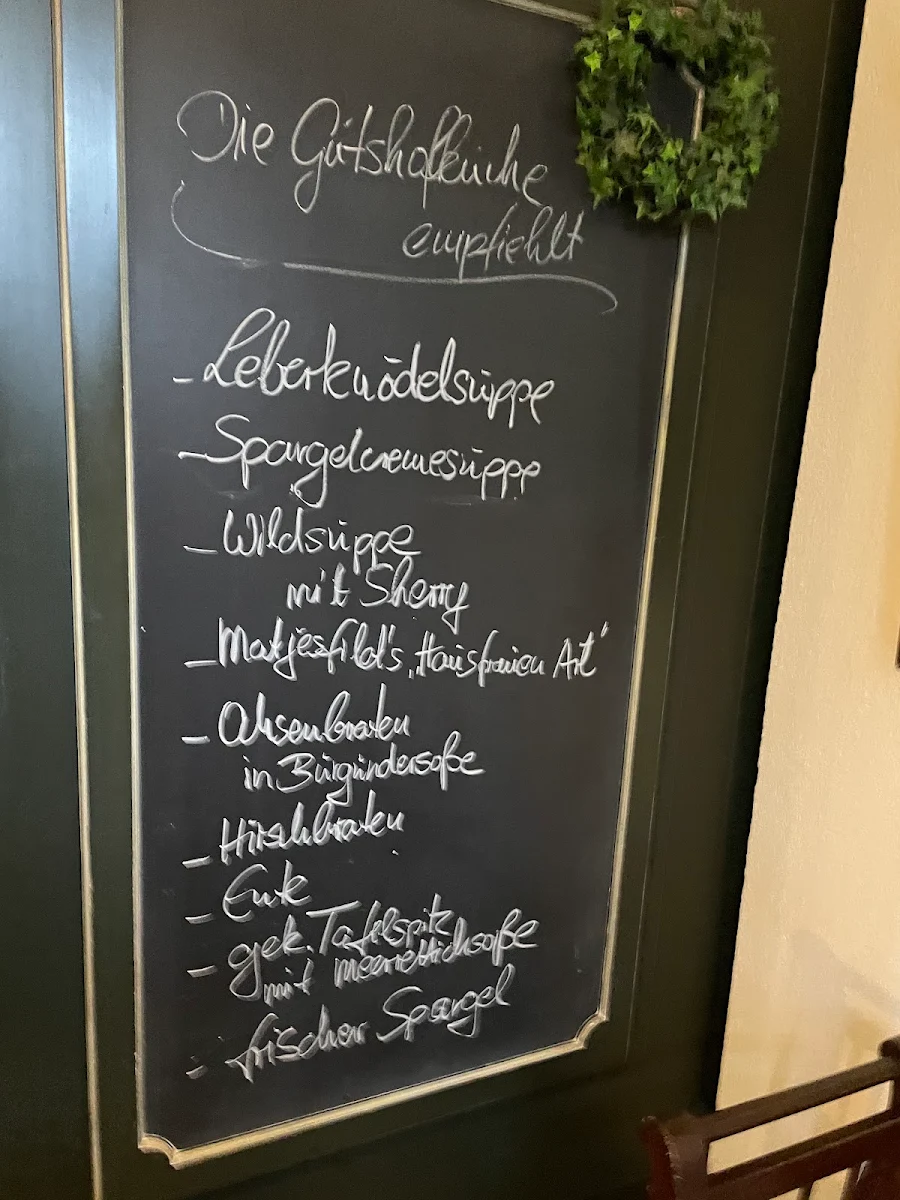 Die Gutshofküche
empfiehlt
- Leberknödelsuppe
- Spargelcremesuppe
- Wildsuppe
mit Sherry
- Matjesfild's „Hausfrauen Art"
- Ochsenbraten
in Burgundersoße
- Hirschbraten
- Ente
- gek. Tafelspitz
mit Meerrettichsoße
- frischer Spargel